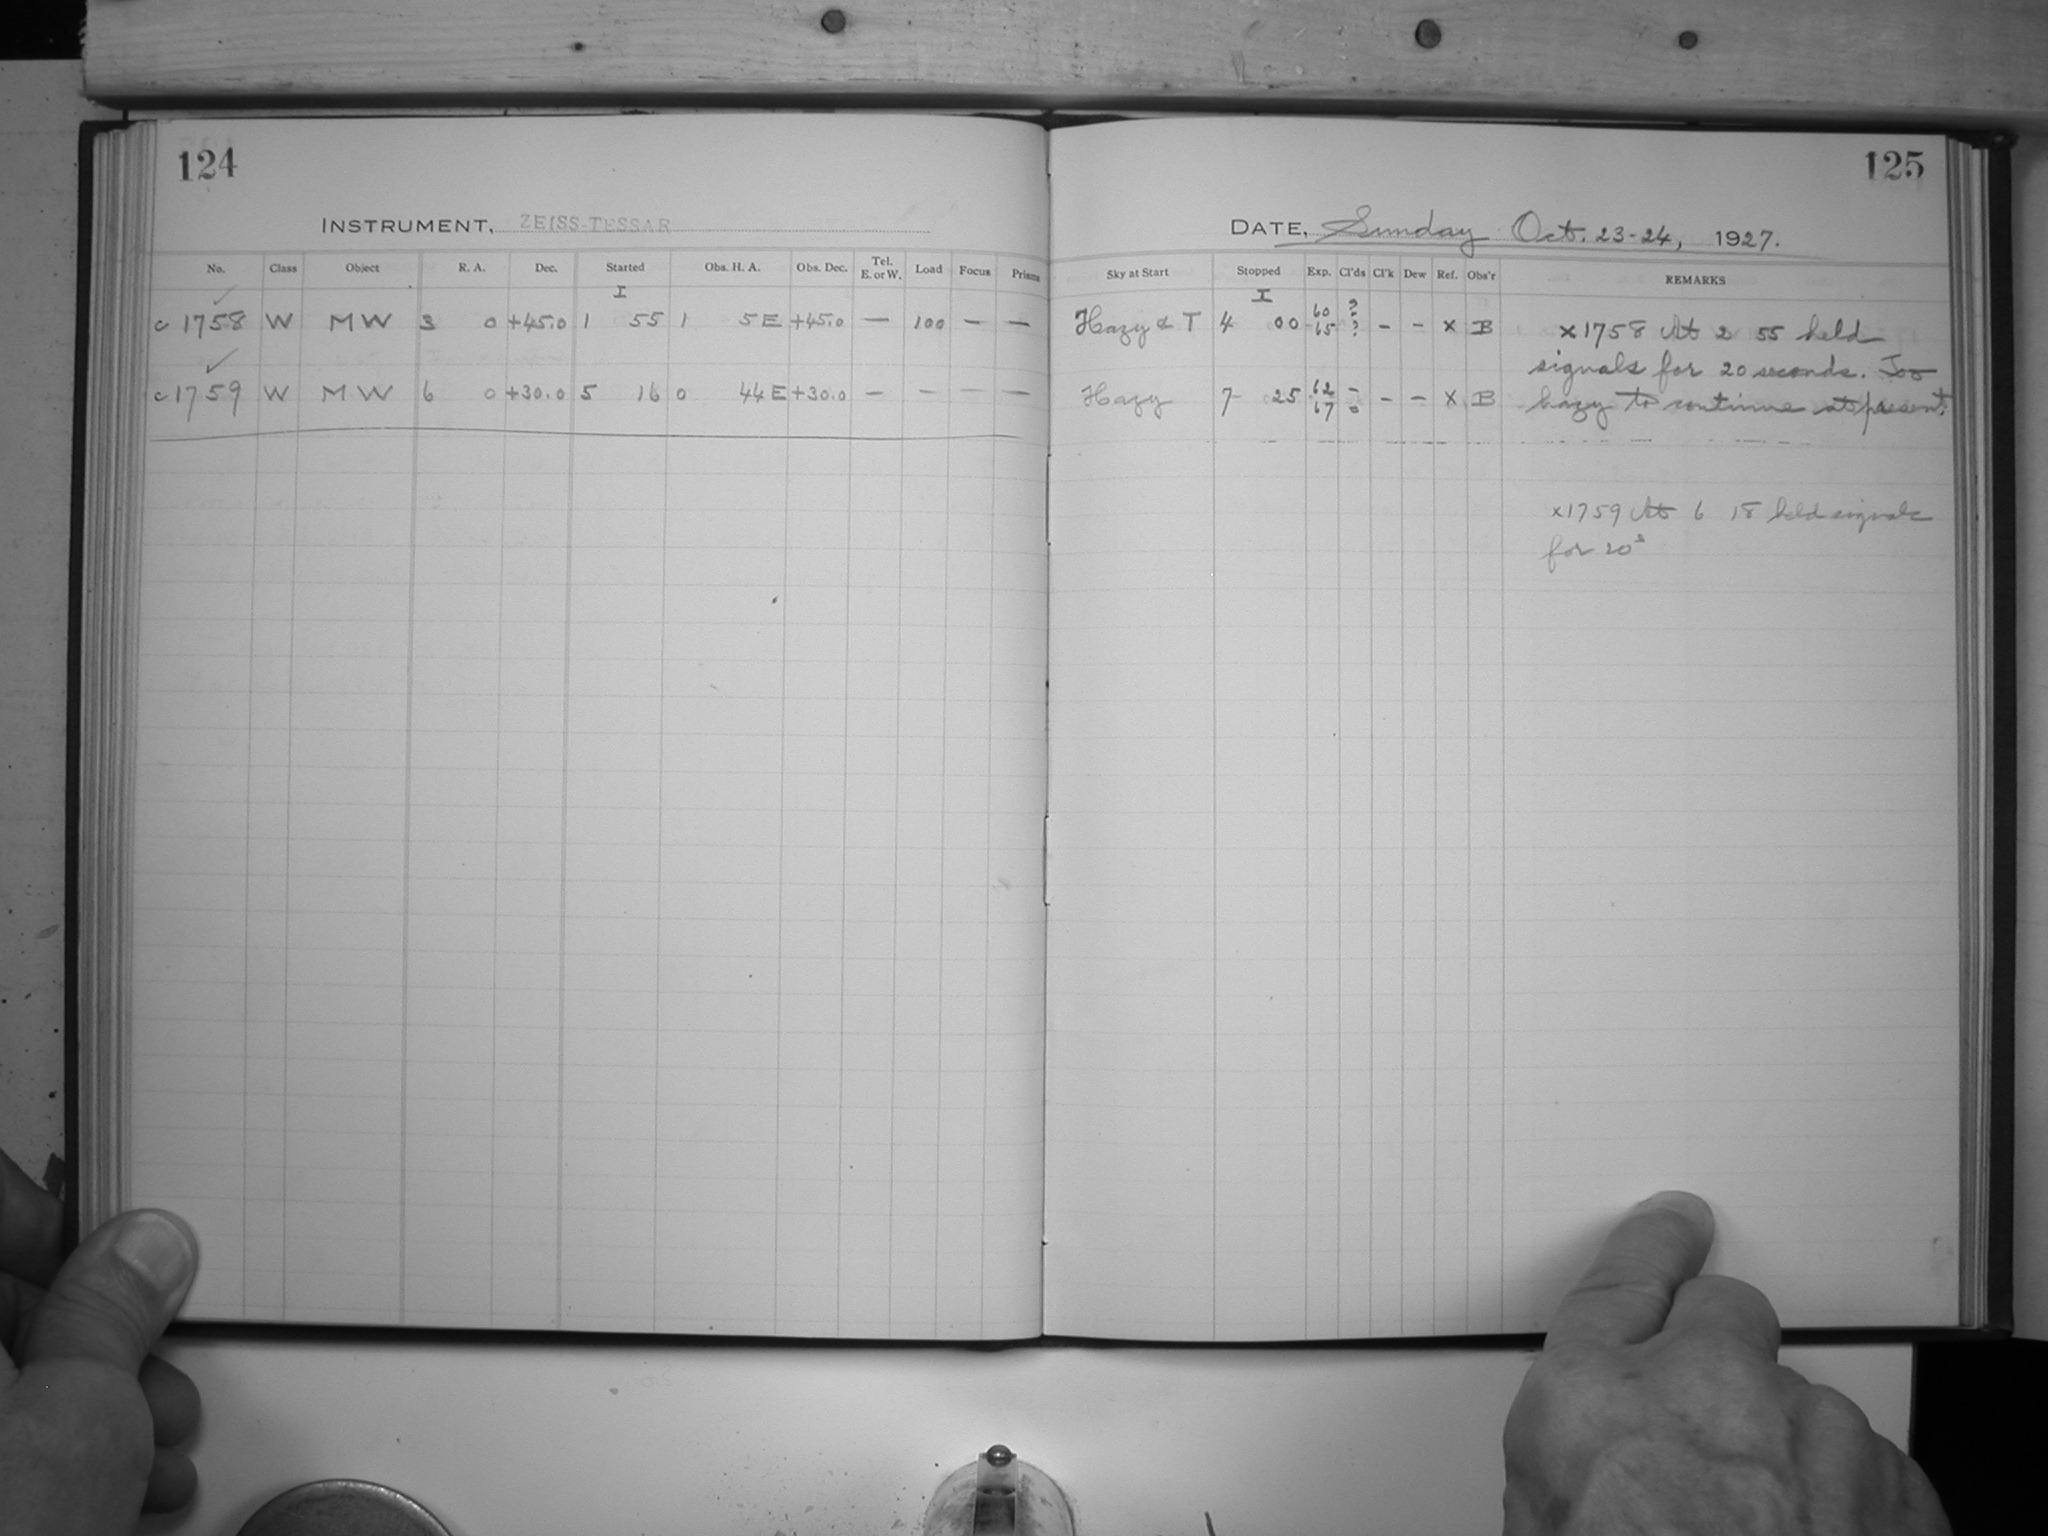 124
INSTRUMENT, ZEISS-TESSAR
No. Class Object R. A. Dec. Started Obs. H. A. Obs. Dec. Tel. E. or W. Load Focus Prisms
I
c 1758 W M W 3 0 +45.0 1 55 1 5 E +45.0 — 100 — —
c 1759 W M W 6 0 +30.0 5 16 0 44 E +30.0 — — — —
125
DATE, Sunday Oct. 23-24, 1927.
Sky at Start Stopped Exp. Cl'ds Cl'k Dew Ref. Obs'r REMARKS
I
Hazy & T 4 00 60 65 ? ? – – x B x1758 At 2 55 held
signals for 20 seconds. Too
Hazy 7 25 62 67 – 0 – – x B hazy to continue at present.
x1759 At 6 18 held signals
for 20s